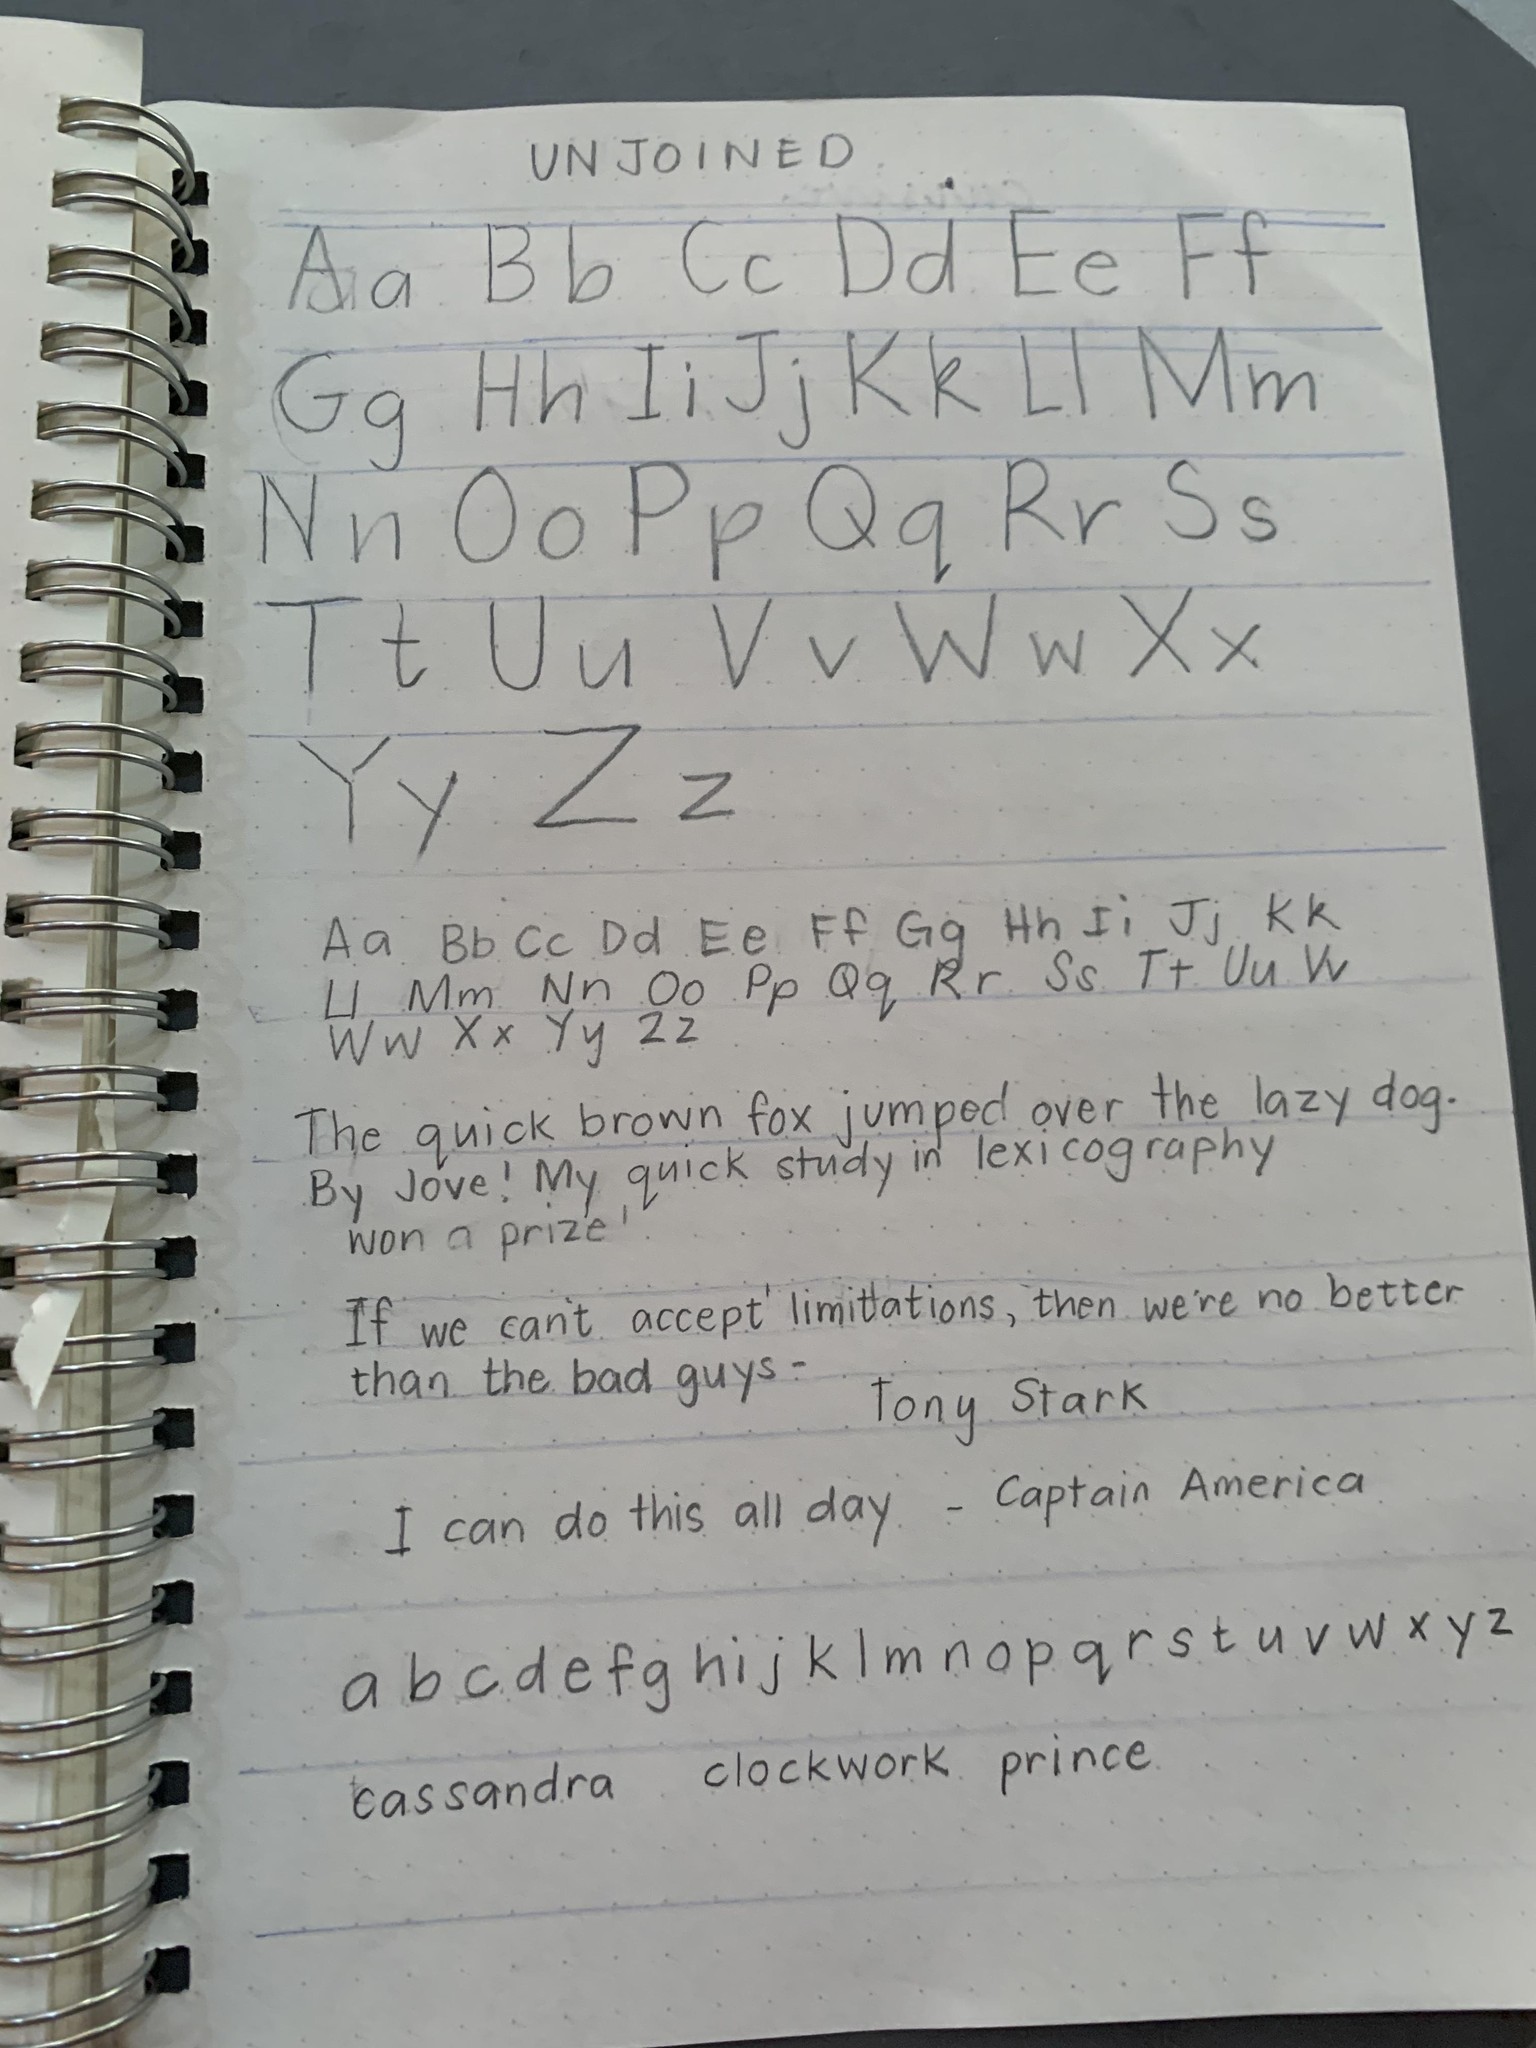 UNJOINED
Aa Bb Cc Dd Ee Ff
Gg Hh Ii Jj Kk Ll Mm
Nn Oo Pp Qq Rr Ss
Tt Uu Vv Ww Xx
Yy Zz
Aa Bb Cc Dd Ee Ff Gg Hh Ii Jj Kk
Ll Mm Nn Oo Pp Qq Rr Ss Tt Uu Vv
Ww Xx Yy Zz
The quick brown fox jumped over the lazy dog.
By Jove! My quick study in lexicography
won a prize!
If we can't accept limittations, then we're no better
than the bad guys -
Tony Stark
I can do this all day - Captain America
a b c d e f g h i j k l m n o p q r s t u v w x y z
cassandra clockwork prince